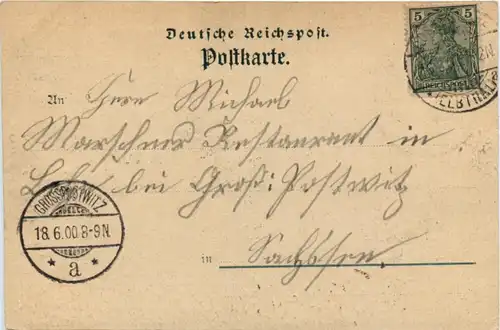 Deutsche Reichspost.
Postkarte.
5 5
An Herrn Michael
Marschner Restaurant in
bei Groß: Postwitz
GROSSPOSTWITZ
18.6.00.8-9N.
* a *
in Sachsen.